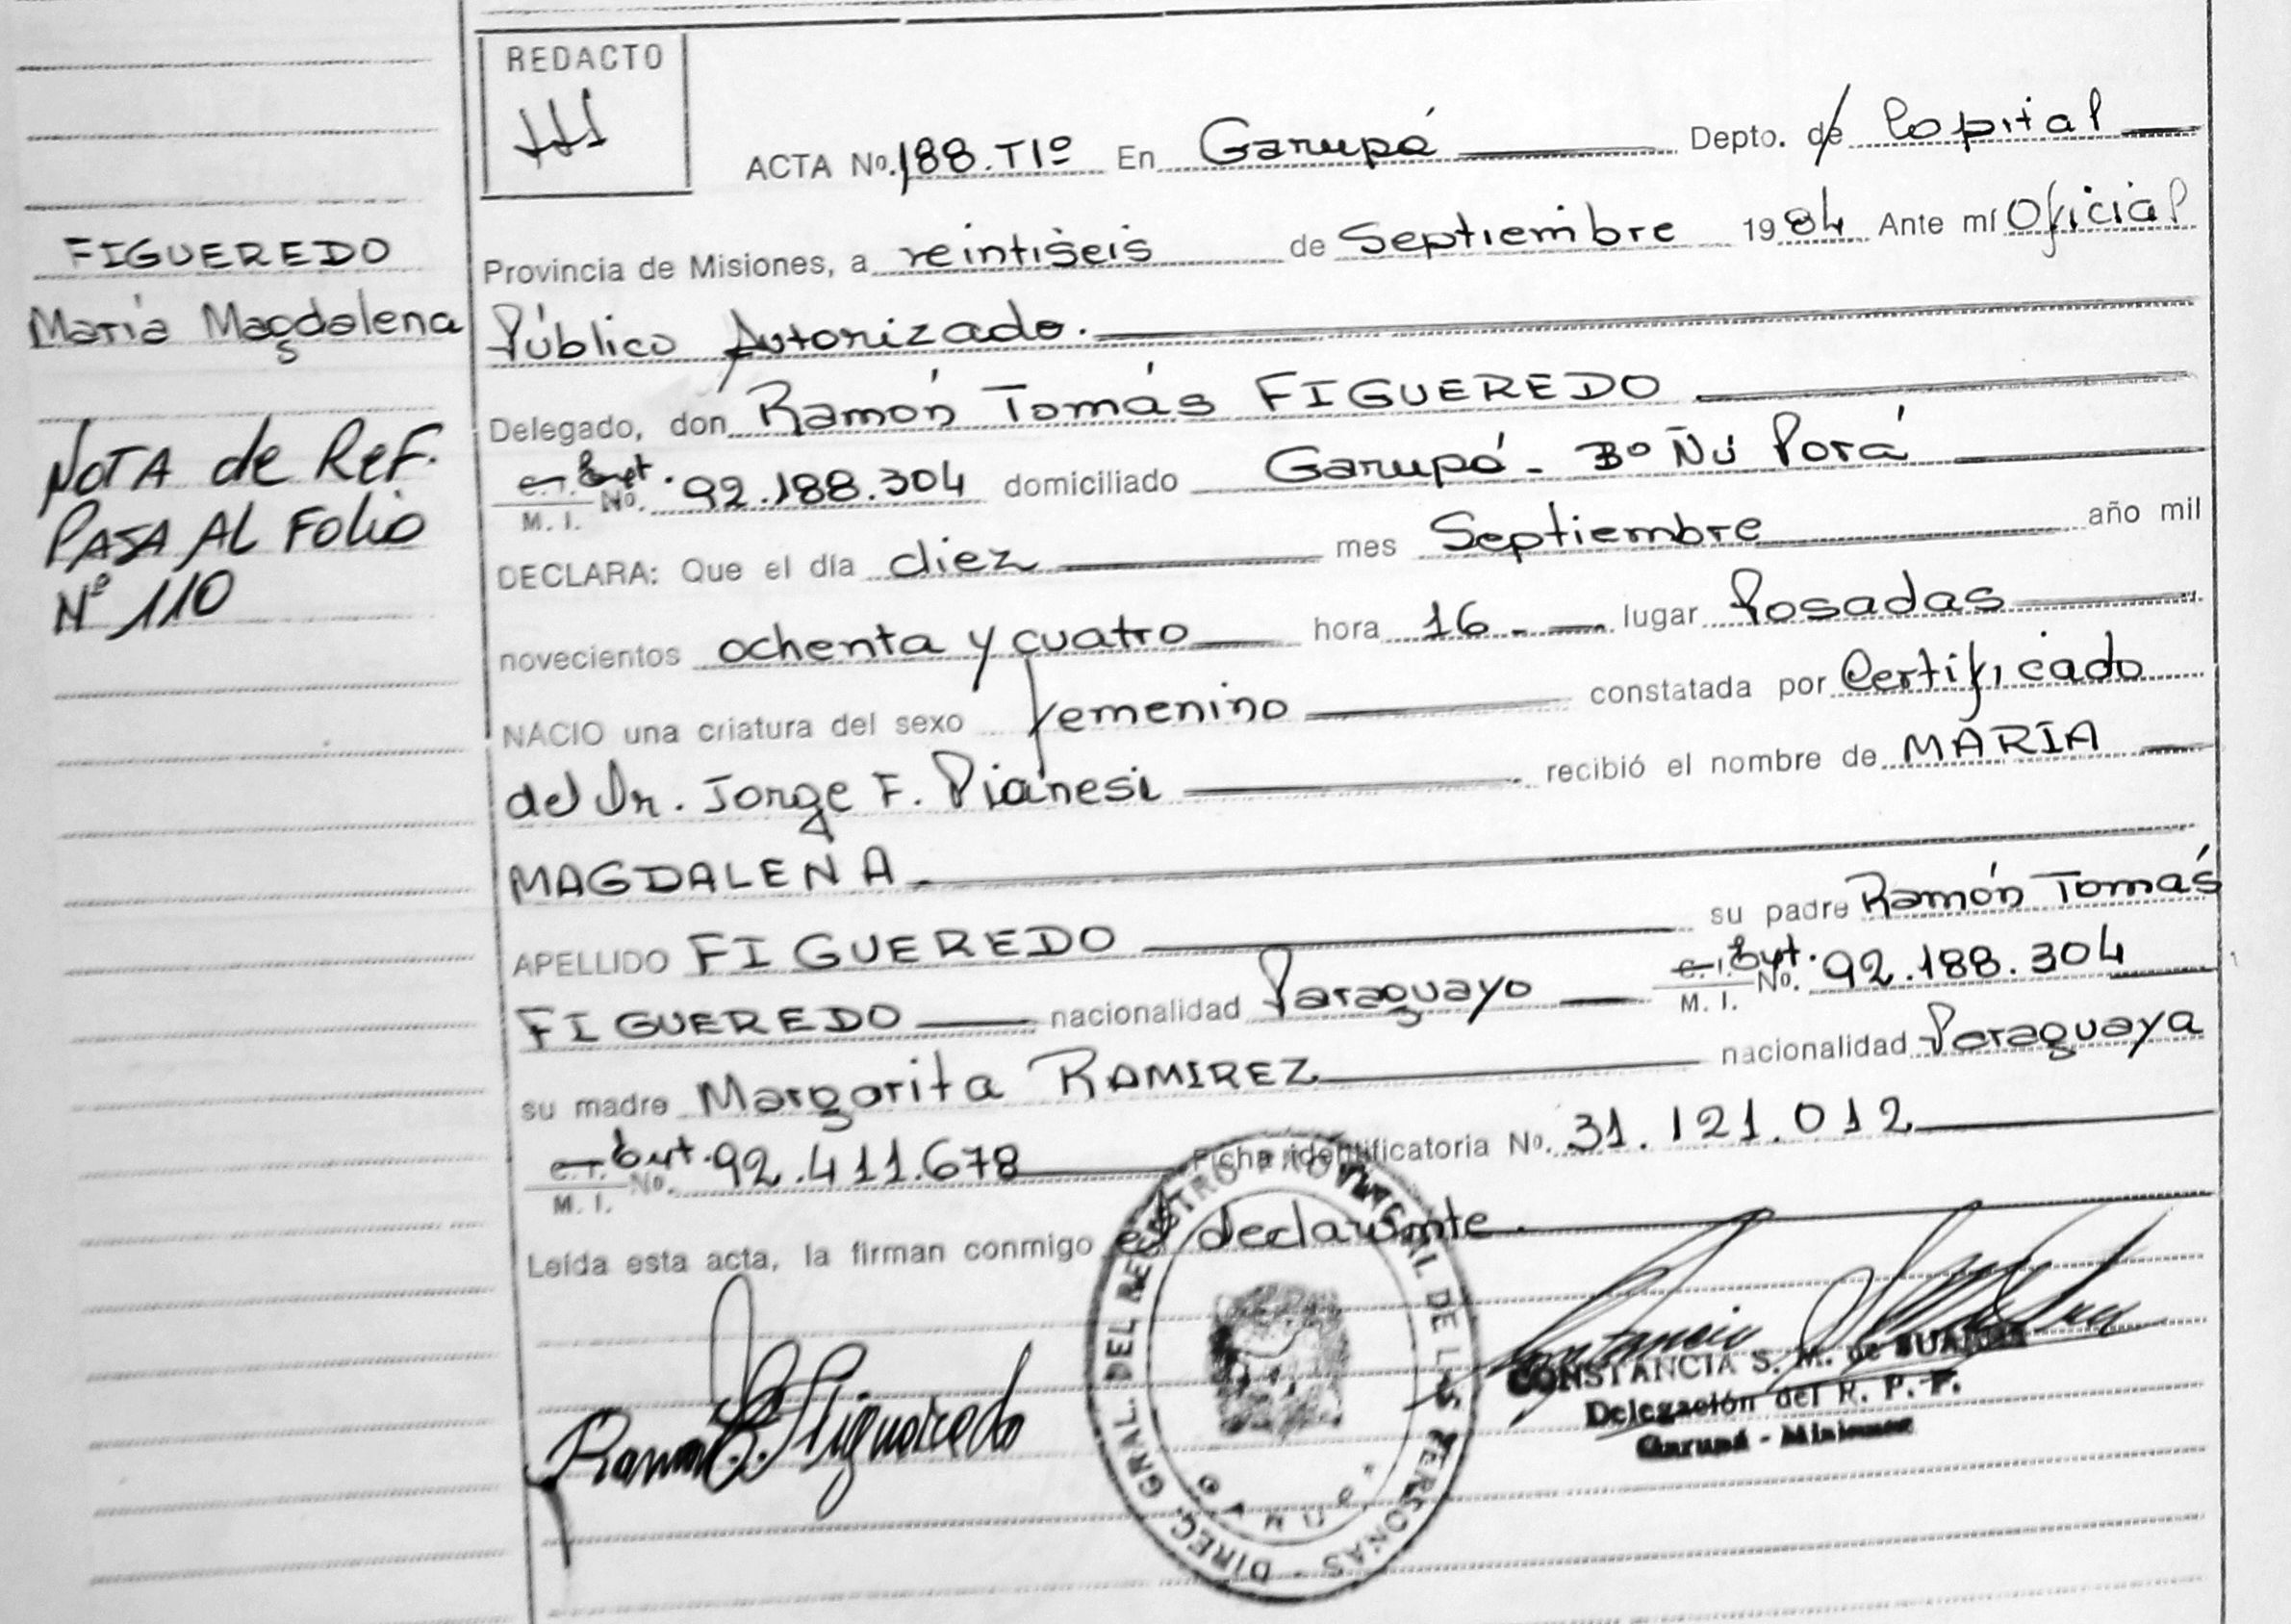 REDACTO
ACTA No. 188. TIº En Garupá Depto. de Capital
FIGUEREDO
María Magdalena
Provincia de Misiones, a veintiseis de Septiembre 1984 Ante mí Oficial
Público Autorizado.
Delegado, don Ramón Tomás FIGUEREDO
NOTA de Ref.
PASA AL Folio
Nº 110
C.I. Ext. No. 92.188.304 domiciliado Garupá - Bº Ñú Porá
M. I.
DECLARA: Que el día diez mes Septiembre año mil
novecientos ochenta y cuatro hora 16.- lugar Posadas
NACIO una criatura del sexo femenino constatada por Certificado
del Dr. Jorge F. Pianesi recibió el nombre de MARÍA
MAGDALENA
APELLIDO FIGUEREDO su padre Ramón Tomás
FIGUEREDO nacionalidad Paraguayo C.I. Ext. No. 92.188.304
M. I.
su madre Margarita RAMIREZ nacionalidad Paraguaya
C.I. Ext. No. 92.411.678 Ficha identificatoria No. 31.121.012
M. I.
Leída esta acta, la firman conmigo el declarante.
DIREC. GRAL. DEL REGISTRO PROVINCIAL DE LAS PERSONAS
CONSTANCIA S. M. de
Delegación del R. P. P.
Garupá - Misiones